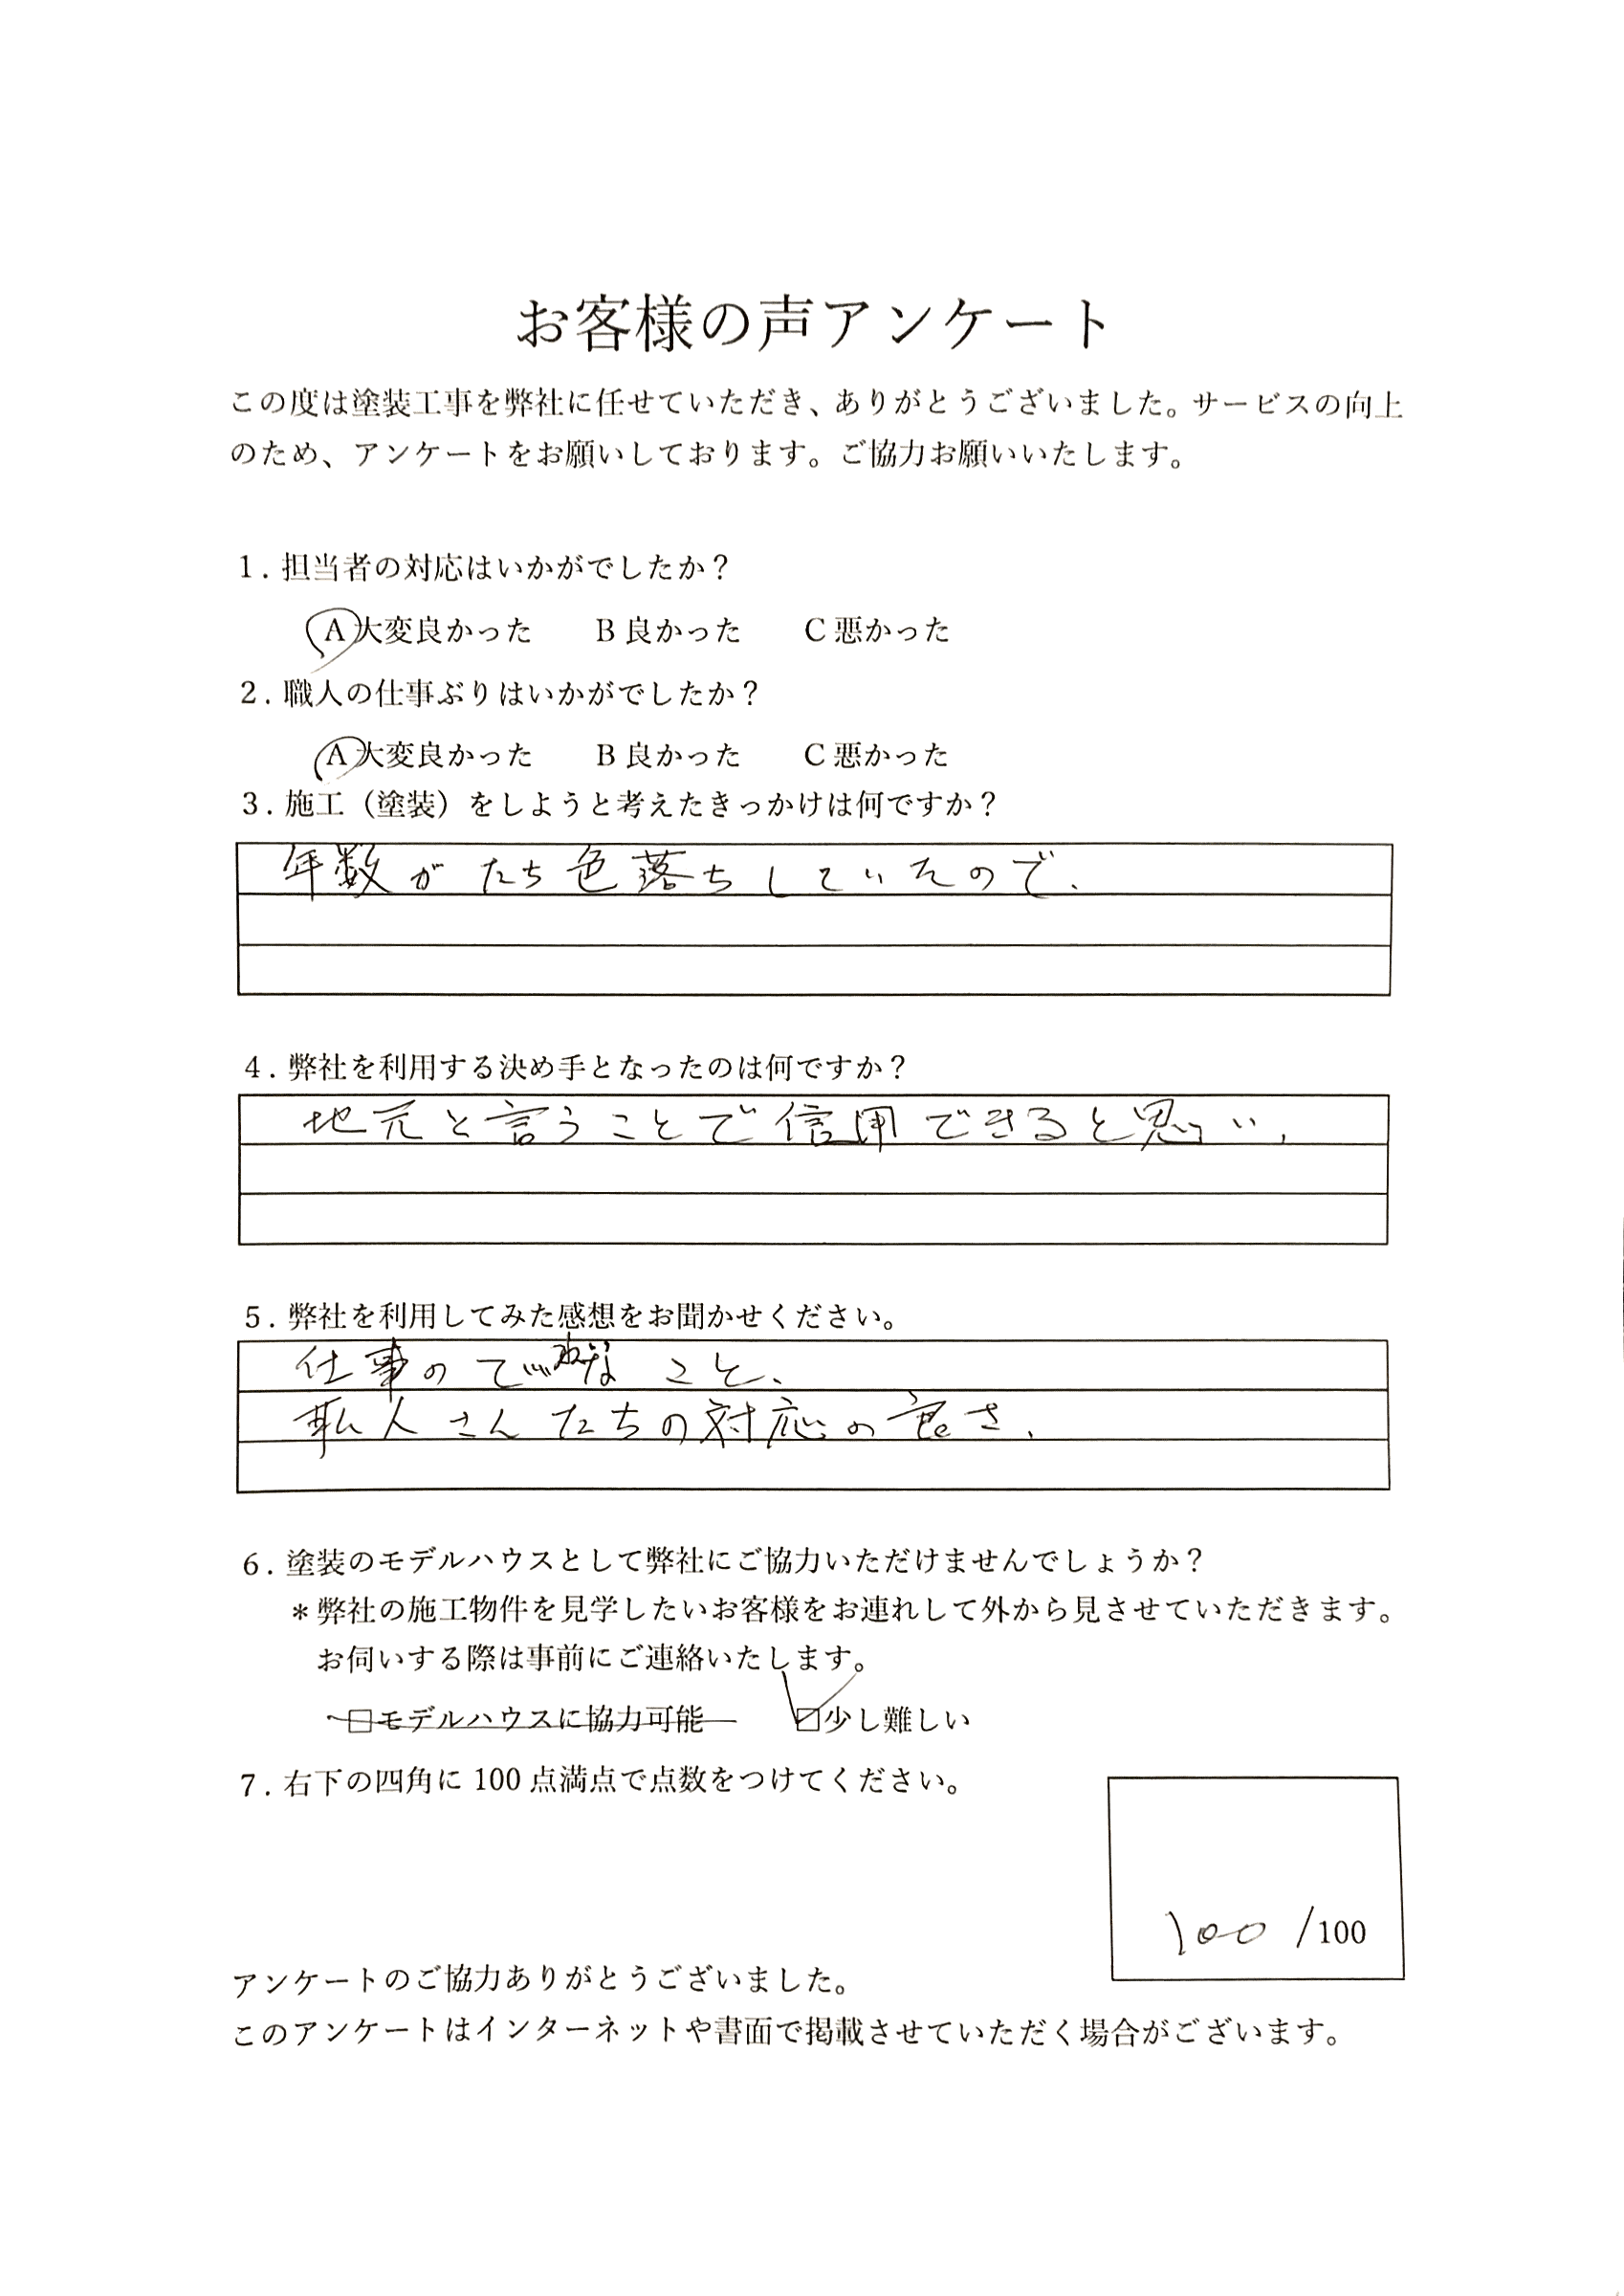 お客様の声アンケート
この度は塗装工事を弊社に任せていただき、ありがとうございました。サービスの向上
のため、アンケートをお願いしております。ご協力お願いいたします。
1. 担当者の対応はいかがでしたか？
A 大変良かった B 良かった C 悪かった
2. 職人の仕事ぶりはいかがでしたか？
A 大変良かった B 良かった C 悪かった
3. 施工（塗装）をしようと考えたきっかけは何ですか？
年数がたち色落ちしていたので、
4. 弊社を利用する決め手となったのは何ですか？
地元と言うことで信用できると思い、
5. 弊社を利用してみた感想をお聞かせください。
仕事の こと、
人さんたちの対応の良さ、
6. 塗装のモデルハウスとして弊社にご協力いただけませんでしょうか？
＊弊社の施工物件を見学したいお客様をお連れして外から見させていただきます。
お伺いする際は事前にご連絡いたします。
□モデルハウスに協力可能 ☑少し難しい
7. 右下の四角に 100 点満点で点数をつけてください。
100 /100
アンケートのご協力ありがとうございました。
このアンケートはインターネットや書面で掲載させていただく場合がございます。